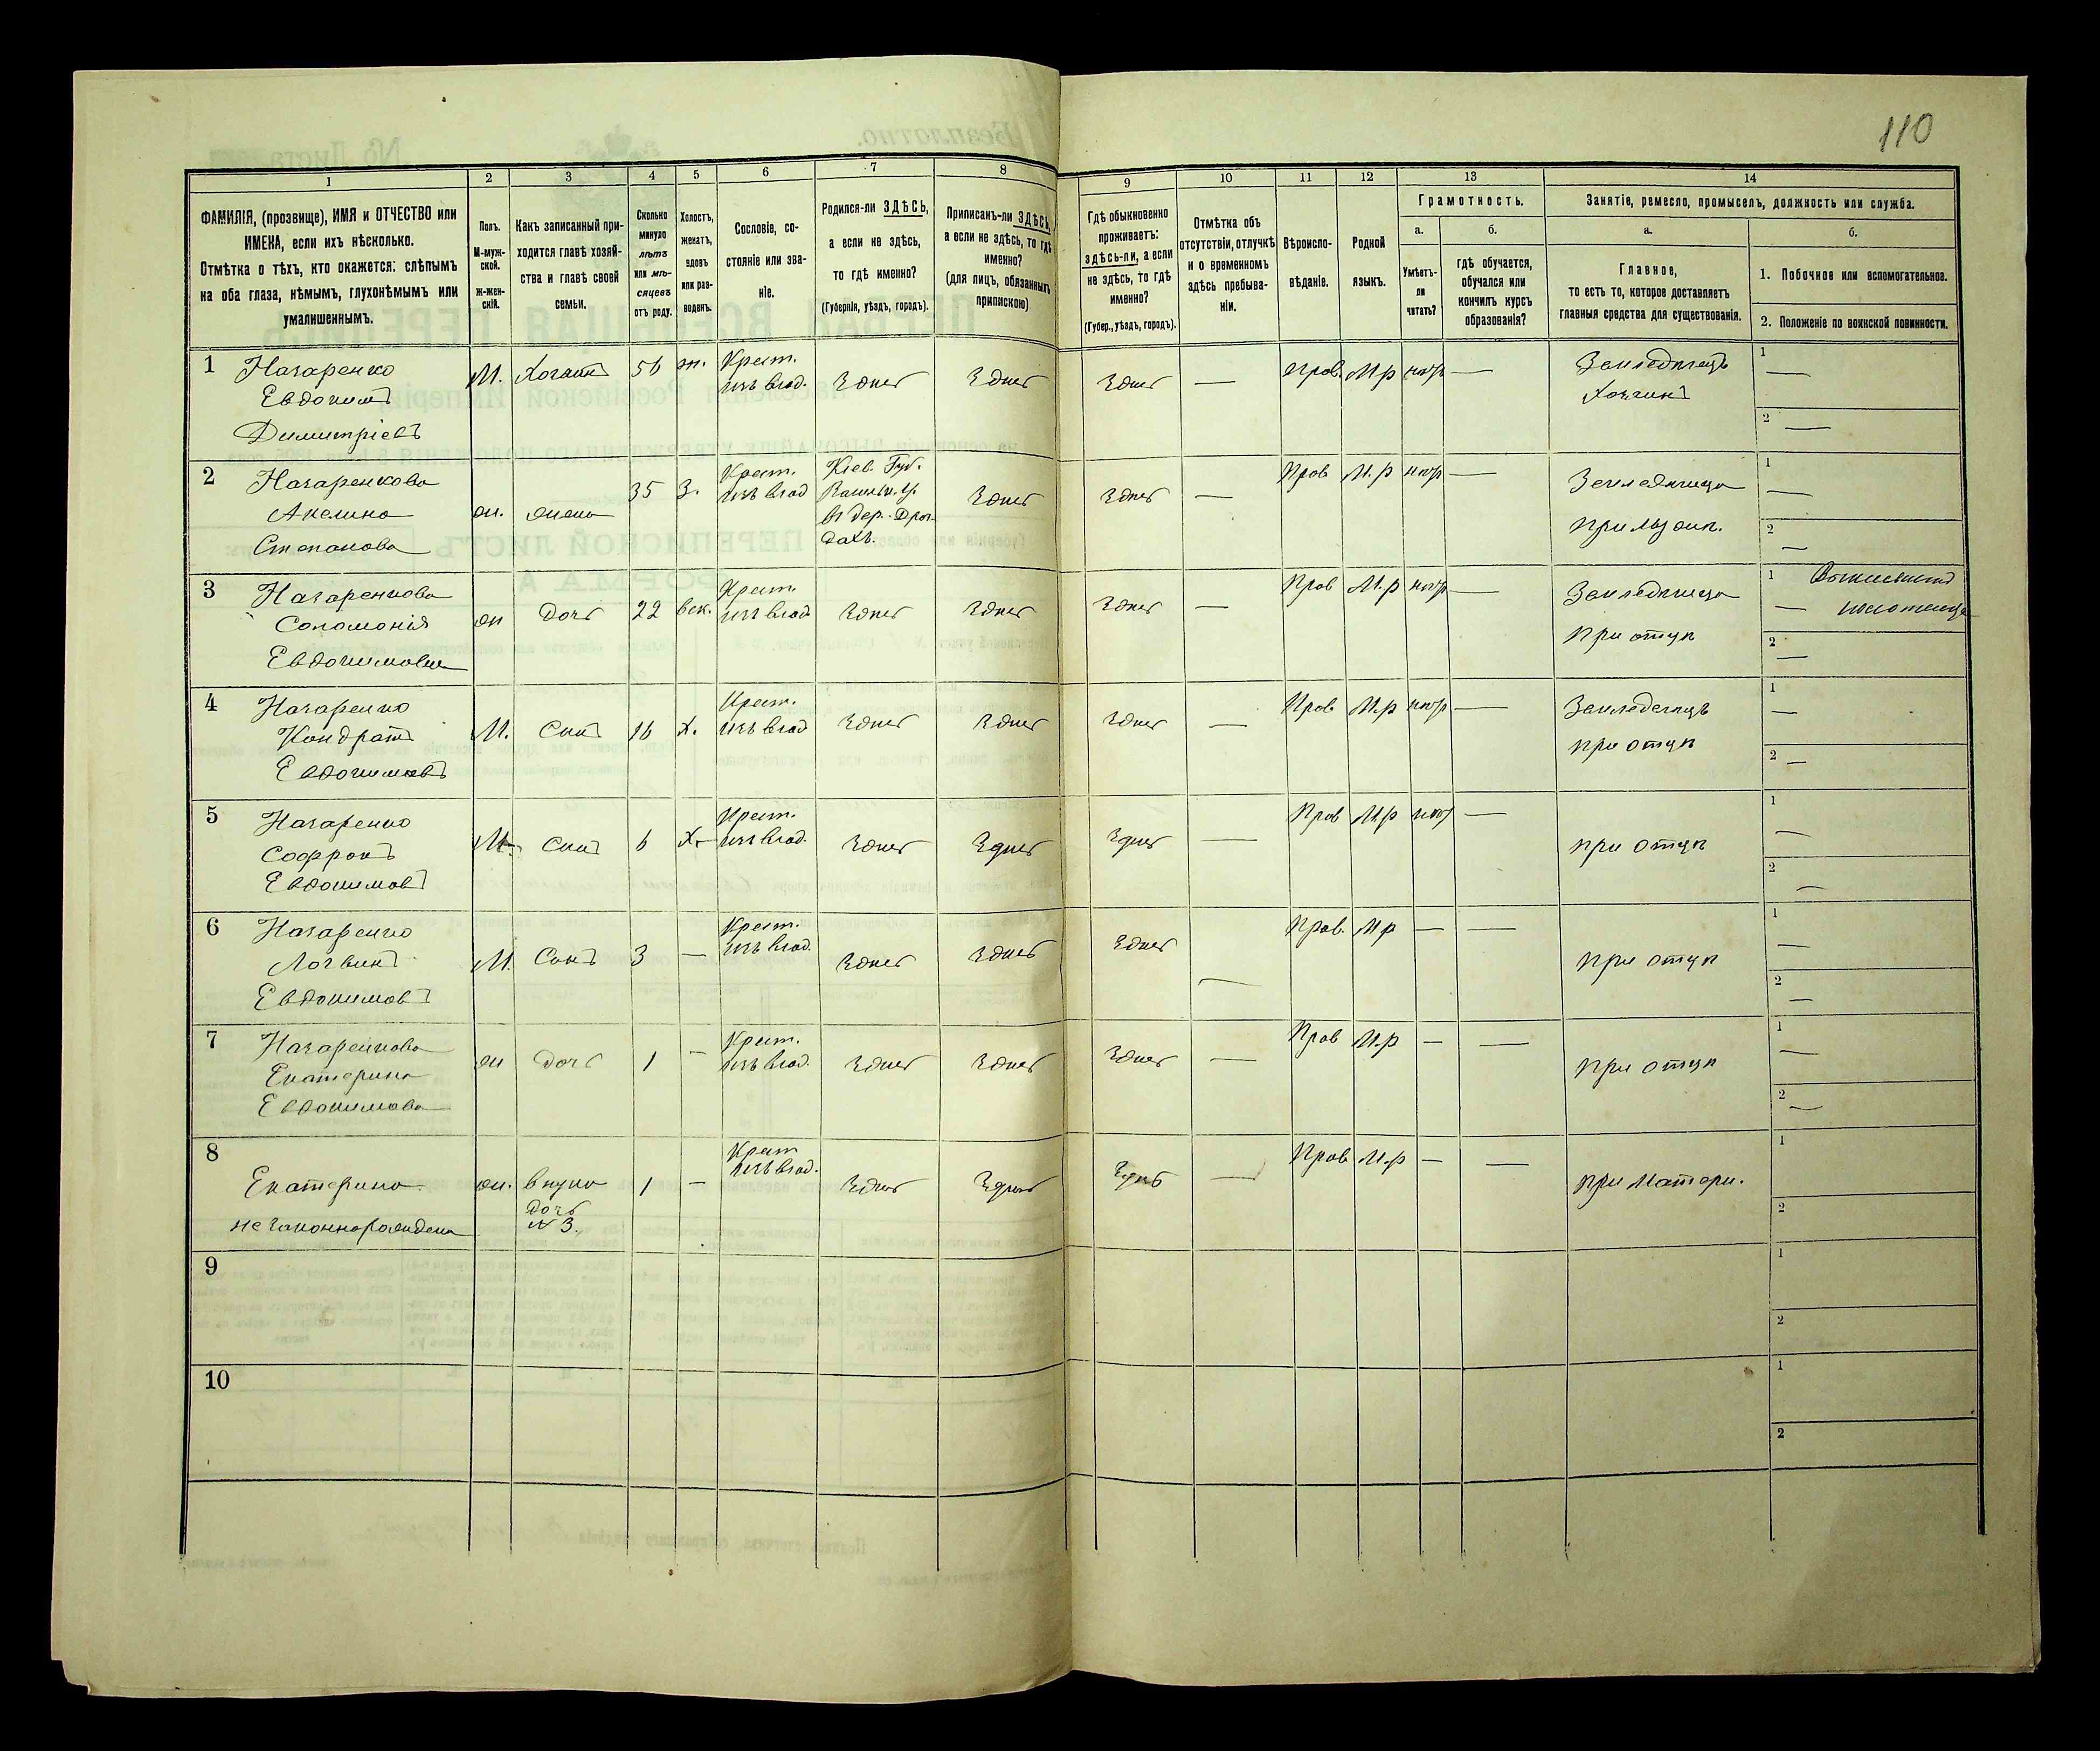 110
1
2
3
4
5
6
7
8
9
10
11
12
13
14
ФАМИЛІЯ, (прозвище), ИМЯ и ОТЧЕСТВО или
ИМЕНА, если ихъ нѣсколько.
Отмѣтка о тѣхъ, кто окажется: слѣпымъ
на оба глаза, нѣмымъ, глухонѣмымъ или
умалишеннымъ.
Полъ.
М-муж-
ской.
Ж-жен-
скій.
Какъ записанный при-
ходится главѣ хозяй-
ства и главѣ своей
семьи.
Сколько
минуло
лѣтъ
или мѣ-
сяцевъ
отъ роду.
Холостъ,
женатъ,
вдовъ
или раз-
веденъ.
Сословіе, со-
стояніе или зва-
ніе.
Родился-ли ЗДѢСЬ,
а если не здѣсь,
то гдѣ именно?
(Губернія, уѣздъ, городъ).
Приписанъ-ли ЗДѢСЬ,
а если не здѣсь, то гдѣ
именно?
(для лицъ, обязанныхъ
припискою)
Гдѣ обыкновенно
проживаетъ:
здѣсь-ли, а если
не здѣсь, то гдѣ
именно?
(Губер., уѣздъ, городъ).
Отмѣтка объ
отсутствіи, отлучкѣ
и о временномъ
здѣсь пребыва-
ніи.
Вѣроиспо-
вѣданіе.
Родной
языкъ.
Грамотность.
а.
Умѣетъ-
ли
читать?
б.
гдѣ обучается,
обучался или
кончилъ курсъ
образованія?
Занятіе, ремесло, промыселъ, должность или служба.
а.
Главное,
то есть то, которое доставляетъ
главныя средства для существованія.
б.
1. Побочное или вспомогательное.
2. Положеніе по воинской повинности.
1 Назаренко
Евдокимъ
Димитріевъ
М. Хозяинъ 56 ж. Крест.
изъ влад.
Здѣсь Здѣсь Здѣсь — Прав. М.р нѣтъ —
Земледѣлецъ
Хозяинъ
1 —
2 —
2 Назаренкова
Акелина
Степанова
ж. жена 35 З. Крест.
изъ влад
Кіев. Губ.
въ дер.
Здѣсь Здѣсь — Прав М.р нѣтъ —
Земледѣлица
при
1 —
2 —
3 Назаренкова
Соломонія
Евдокимовна
ж Дочь 22 Крест.
изъ влад
Здѣсь Здѣсь Здѣсь — Прав М.р нѣтъ —
Земледѣлица
при отцѣ
1 —
2 —
4 Назаренко
Кондратъ
Евдокимовъ
М. Сынъ 16 Х. Крест.
изъ влад
Здѣсь Здѣсь Здѣсь — Прав М.р нѣтъ —
Земледелецъ
при отцѣ
1 —
2 —
5 Назаренко
Софронъ
Евдокимовъ
М. Сынъ 6 Х. Крест.
изъ влад.
Здѣсь Здѣсь Здѣсь — Прав М.р нѣтъ —
при отцѣ
1 —
2 —
6 Назаренко
Логвинъ
Евдокимовъ
М. Сынъ 3 — Крест.
изъ влад.
Здѣсь Здѣсь Здѣсь — Прав. М.р — —
при отцѣ
1 —
2 —
7 Назаренкова
Екатерина
Евдокимова
ж Дочь 1 — Крест.
изъ влад.
Здѣсь Здѣсь Здѣсь — Прав М.р — —
при отцѣ
1 —
2 —
8
Екатерина
незаконнорождена
ж. внука
дочь
№ 3.
1 — Крест
изъ влад.
Здѣсь Здѣсь Здѣсь — Прав М.р — —
при Матери.
1
2
9
1
2
10
1
2